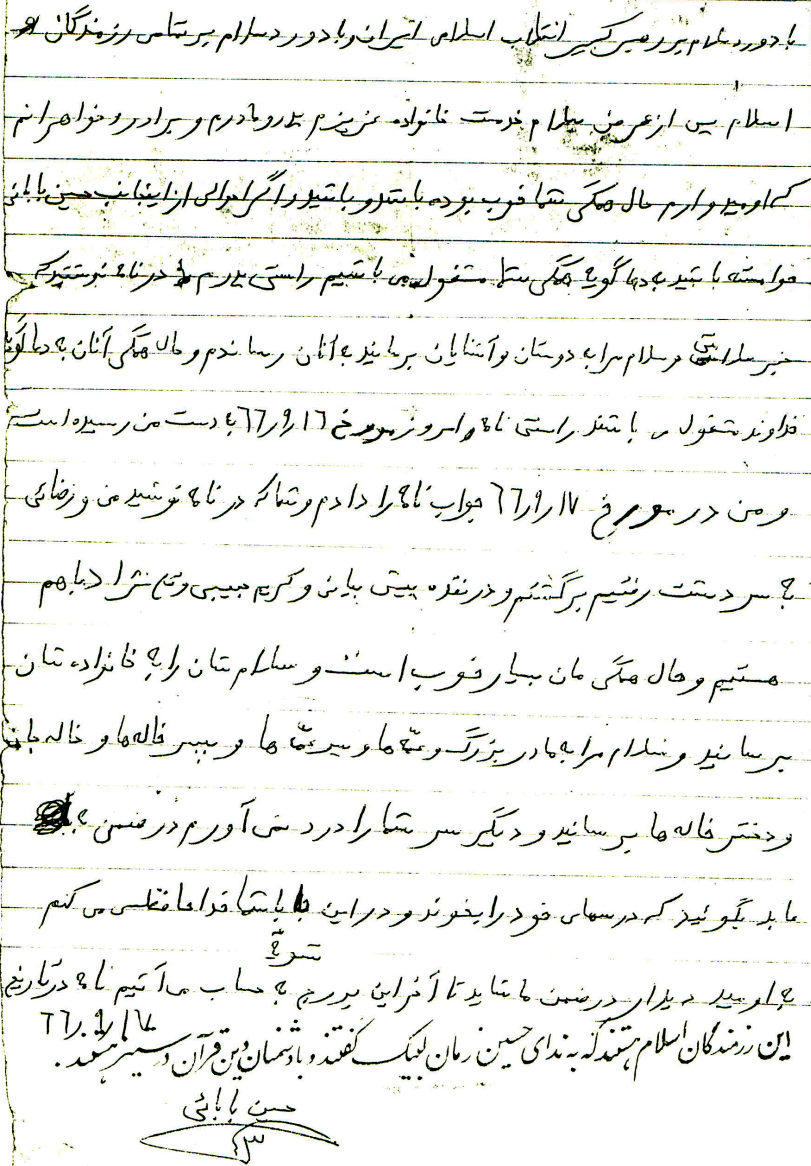 با درود و سلام بر رهبر کبیر انقلاب اسلامی ایران و با درود و سلام بر تمامی رزمندگان
اسلام پس از عرض سلام خدمت خانواده عزیزم پدر و مادرم و برادر و خواهرانم
که اومیدوارم حال همگی شما خوب بوده باشد و باشید و اگر احوالی از اینجانب حسین بابائی
خواسته باشید به دعا گویه همگی شما مشغول می باشیم راستی پدرم در نامه نوشتید که
خبر سلامتی و سلام مرا به دوستان و آشنایان برسانید به آنان رساندم و حال همگی آنان به دعا گویه
خداوند مشغول می باشند راستی نامه امروز مورخ ۶۶/۹/۱۶ به دست من رسیده است
و من در مورخ ۶۶/۹/۱۷ جواب نامه را دادم و شما که در نامه نوشتید من و رضائی
به سردشت رفتیم برگشتیم و در نقده پیش بیانی و کریم حبیبی و نژاد باهم
هستیم و حال همگی مان بسیار خوب است و سلام شان را به خانواده شان
برسانید و سلام مرا به مادر بزرگ و عمّه ها و پسر عمّه ها و پسر خاله ها و خاله جان
و دختر خاله ها برسانید و دیگر سر شما را درد نمی آورم در ضمن به
بگوئید که درسهای خود را بخوند و در این با شما خداحافظی می کنم
به اومید دیدار در ضمن ما شاید تا آخر این برج به حساب می آئیم نامه در تاریخ
۶۶/۹/۱۷
این رزمندگان اسلام هستند که به ندای حسین زمان لبیک گفتند و با دشمنان دین قرآن در ستیز هستند.
حسین بابائی